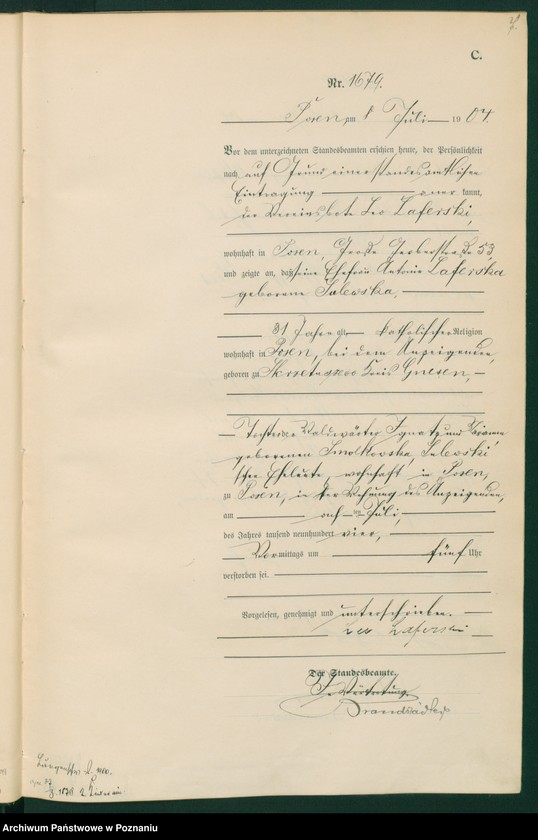 C.
Nr. 1679.
Posen, am 8 Juli 1904.
Vor dem unterzeichneten Standesbeamten erschien heute, der Persönlichkeit
nach auf Grund einer standesamtlichen
Eintragung anerkannt,
der Vereinsbote Leo Laferski,
wohnhaft in Posen, Große Gerberstraße 53
und zeigte an, daß seine Ehefrau Antonie Laferska
geborene Sulewska,
31 Jahre alt, katholischer Religion
wohnhaft in Posen, bei dem Anzeigenden,
geboren zu Kreis Gnesen,
Tochter der Waldwärter Ignatz und
geborenen Smolkowska, Sulewski
'schen Eheleute, wohnhaft in Posen,
zu Posen, in der Wohnung des Anzeigenden,
am ten Juli,
des Jahres tausend neunhundert vier,
Vormittags um fünf Uhr
verstorben sei.
Vorgelesen, genehmigt und unterschrieben.
Leo Laferski
Der Standesbeamte.
In Vertretung.
Archiwum Państwowe w Poznaniu